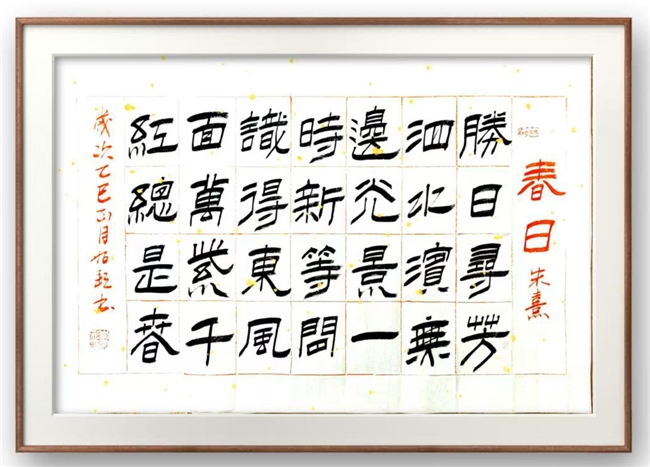 春日
朱熹
勝日尋芳
泗水濱無
邊光景一
時新等間
識得東風
面萬紫千
紅總是春
歲次乙巳正月書